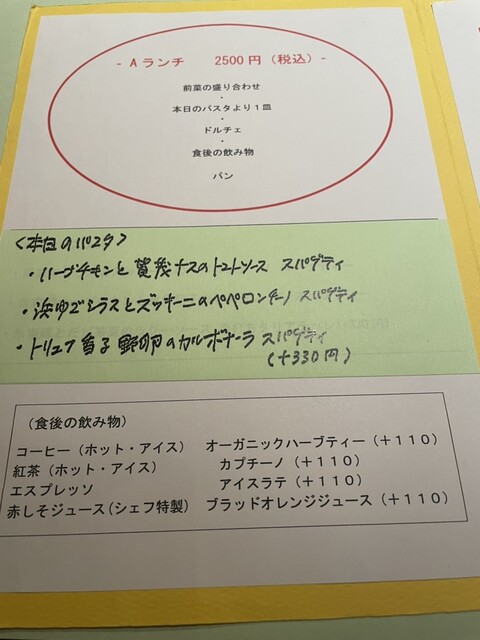 - Aランチ 2500円（税込）-
前菜の盛り合わせ
・
本日のパスタより１皿
・
ドルチェ
・
食後の飲み物
・
パン
〈本日のパスタ〉
・ハーブチキンと賀茂ナスのトマトソース スパゲティ
・浜ゆでシラスとズッキーニのペペロンチーノ スパゲティ
・トリュフ香る 卵のカルボナーラ スパゲティ
(＋330円)
（食後の飲み物）
コーヒー（ホット・アイス） オーガニックハーブティー（＋１１０）
紅茶（ホット・アイス） カプチーノ（＋１１０）
エスプレッソ アイスラテ（＋１１０）
赤しそジュース(シェフ特製） ブラッドオレンジジュース（＋１１０）